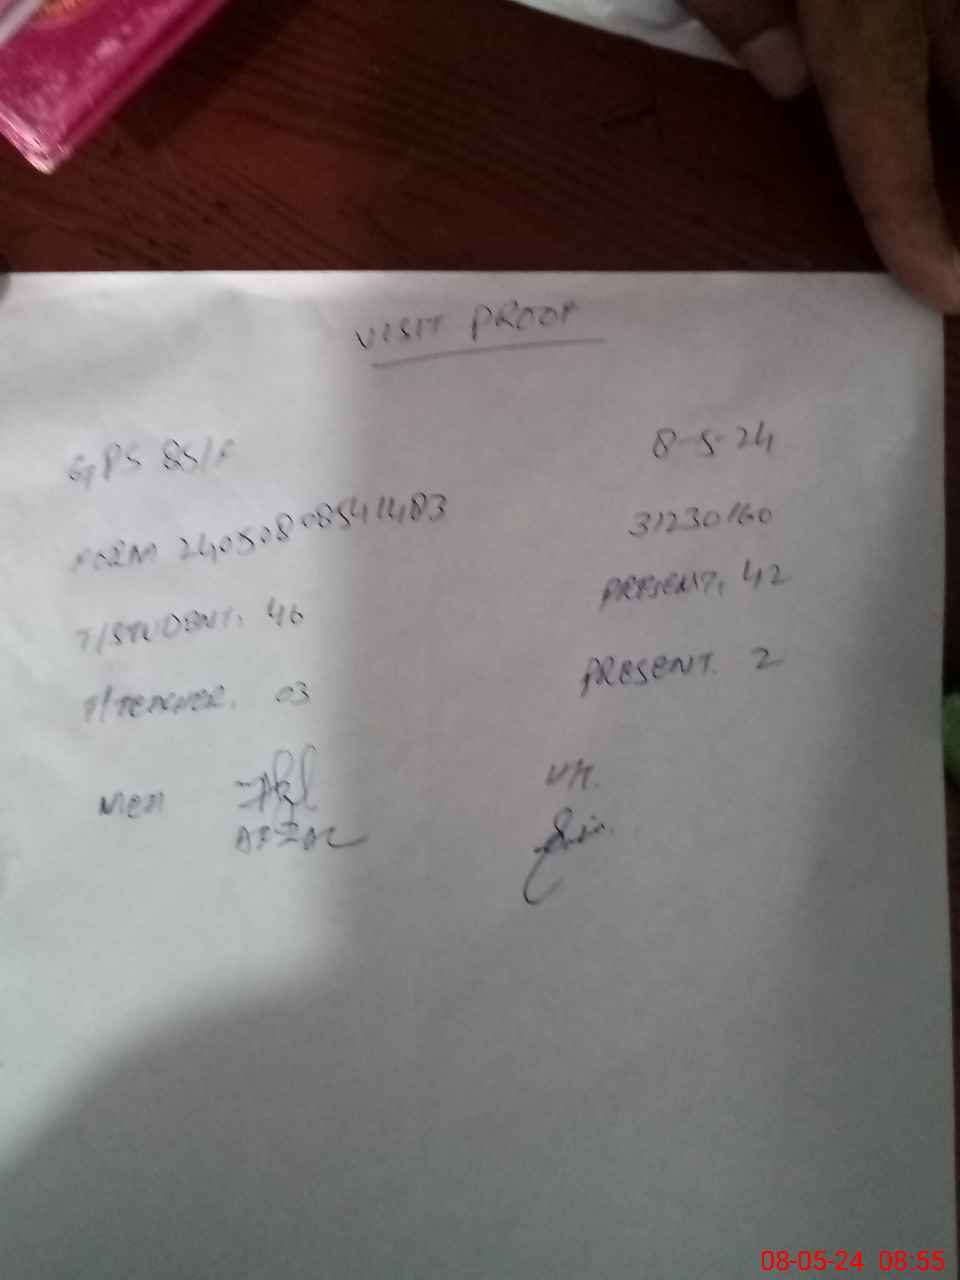 VISIT PROOF
GPS 85/F 8-5-24
FORM 24050808541483 31230160
T/STUDENT. 46 PRESENT. 42
T/TEACHER. 03 PRESENT. 2
AFZAL
08-05-24 08:55